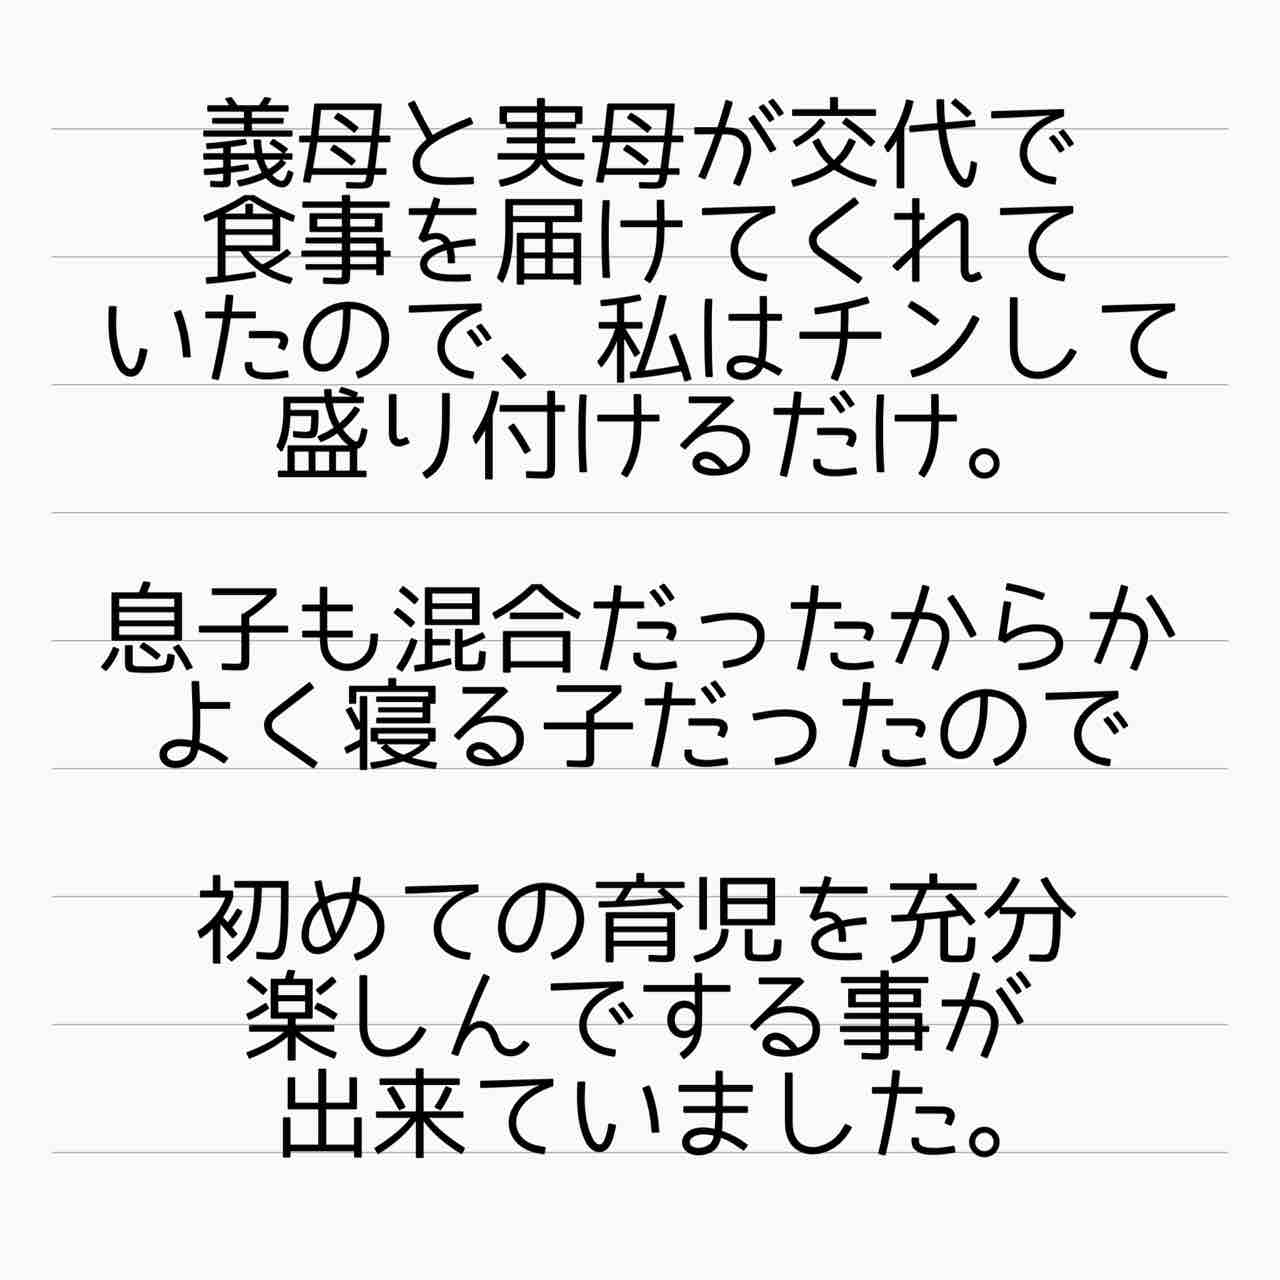 義母と実母が交代で
食事を届けてくれて
いたので、私はチンして
盛り付けるだけ。
息子も混合だったからか
よく寝る子だったので
初めての育児を充分
楽しんでする事が
出来ていました。